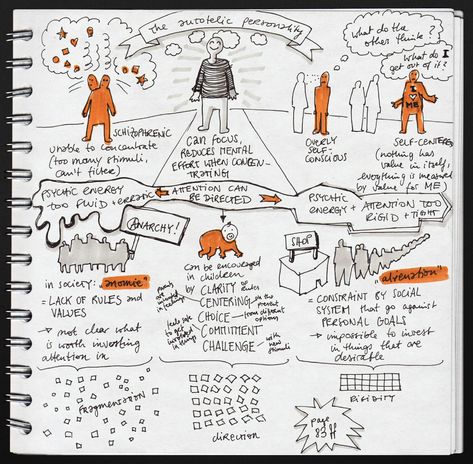 The autotelic personality
What do the
others think?
What do I
get out of it?
I
♥
ME
SCHIZOPHRENIC
unable to concentrate
(too many stimuli,
can't filter)
can focus,
REDUCES MENTAL
EFFORT WHEN CONCEN-
TRATING
OVERLY
SELF-
CONSCIOUS
SELF-CENTERED
(nothing has
value in itself,
everything is measured
by value for ME)
PSYCHIC ENERGY
TOO FLUID + ERRATIC
ATTENTION CAN
BE DIRECTED
PSYCHIC
ENERGY +
ATTENTION TOO
RIGID + TIGHT
ANARCHY!
in society: "anomie"
= LACK OF RULES and
VALUES
→ not clear what
is worth investing
attention in
can be encouraged
in children
by CLARITY
CENTERING in the present
CHOICE from different options
COMMITMENT
CHALLENGE with new stimuli
feels safe
to get
involved
in things
SHOP
"alienation"
= CONSTRAINT BY SOCIAL
SYSTEM that go against
PERSONAL GOALS
→ impossible to invest
in things that are
desirable
FRAGMENTATION
direction
RIGIDITY
page
83 ff